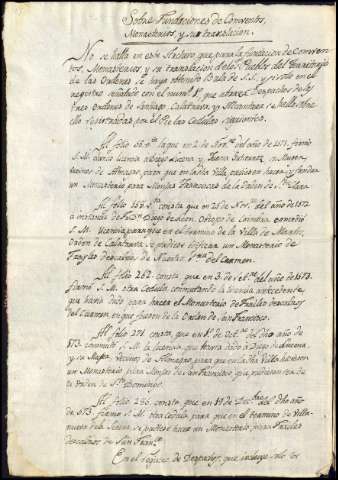 Sobre Fundaciones de Conventos,
Monasterios y su translacion.
No se halla en este Archivo que para la fundacion de Conven-
tos, Monasterios y su translacion de los Pueblos del Territorio
de las Ordenes se haya obtenido Bula de S.S. y si solo en el
registro señalado con el num.º 1º que abraza Despachos de las
tres Ordenes de Santiago, Calatrava, y Alcantara se halla sobre
ello registradas por el Rl. las Cedulas siguientes.
Al folio consta que en 2 de Nov.re del año de 1571 firmó
S.M. licencia
cinos de Almagro, para que en dicha Villa pudiesen hacer, y fundar
un Monasterio para Monjas Franciscas de la Orden de S.ta Clara.
Al folio 157 consta que en 25 de Nov.re del año de 1572
a instancia de Dn. Diego de Leon, Obispo de Coimbra, concedió
S.M. licencia para que en el termino de la Villa de
Orden de Calatrava se pudiese edificar un Monasterio de
Frayles descalzos de Nuestra S.ra del Carmen.
Al folio 262 consta que en 3 de del año de 1573
firmó S.M. otra Cedula, comutando la licencia antecedente,
que havia dado para hacer el Monasterio de Frailes descalzos
del Carmen en que fuesen de la Orden de San Francisco.
Al folio 271 consta que en 1º de Oct.re del dho año de
573, comutó S.M. la licencia que havia dado a Diego de
y su Muger, vecinos de Almagro, para que en la dha Villa hiciesen
un Monasterio para Monjas de San Francisco, que pudiesen ser de
la Orden de S.to Domingo.
Al folio 296 consta que en 17 de del dho año
de 573, firmó S.M. otra Cedula, para que en el termino de Villa-
nueva de la Serena se pudiese hacer un Monasterio para Frailes
descalzos de San Fran.co
En el registro de Despachos, que incluye solo los